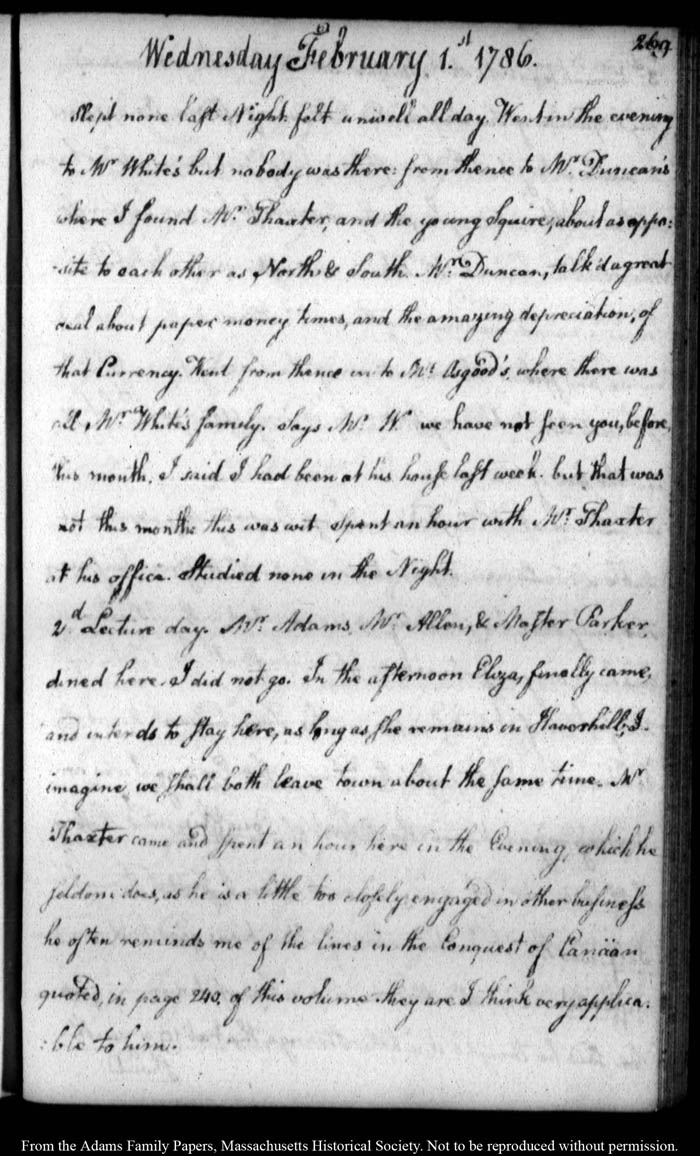 269
Wednesday February 1.st 1786.
Slept none last Night. felt unwell all day. Went in the evening
to Mr White's but nobody was there: from thence to Mr. Duncan's
where I found Mr. Thaxter, and the young Squire, about as oppo:
:site to each other as North & South. Mr. Duncan, talk'd a great
deal about paper money times, and the amazing depreciation, of
that Currency. Went from thence in to Mr. Osgood's, where there was
all Mr. White's family. Says Mr. W. we have not seen you, before,
this month. I said I had been at his house last week. but that was
not this month: this was wit. Spent an hour with Mr. Thaxter
at his office. Studied none in the Night.
2d. Lecture day. Mr. Adams, Mr. Allen, & Master Parker,
dined here. I did not go. In the afternoon Eliza, finally came,
and intends to stay here, as long as she remains in Haverhill; I
imagine, we shall both leave town about the same time. Mr
Thaxter came and spent an hour here in the Evening, which he
seldom does, as he is a little too closely engaged in other business
he often reminds me of the lines in the Conquest of Canäan
quoted, in page 240, of this volume they are I think very applica:
:ble to him.
From the Adams Family Papers, Massachusetts Historical Society. Not to be reproduced without permission.